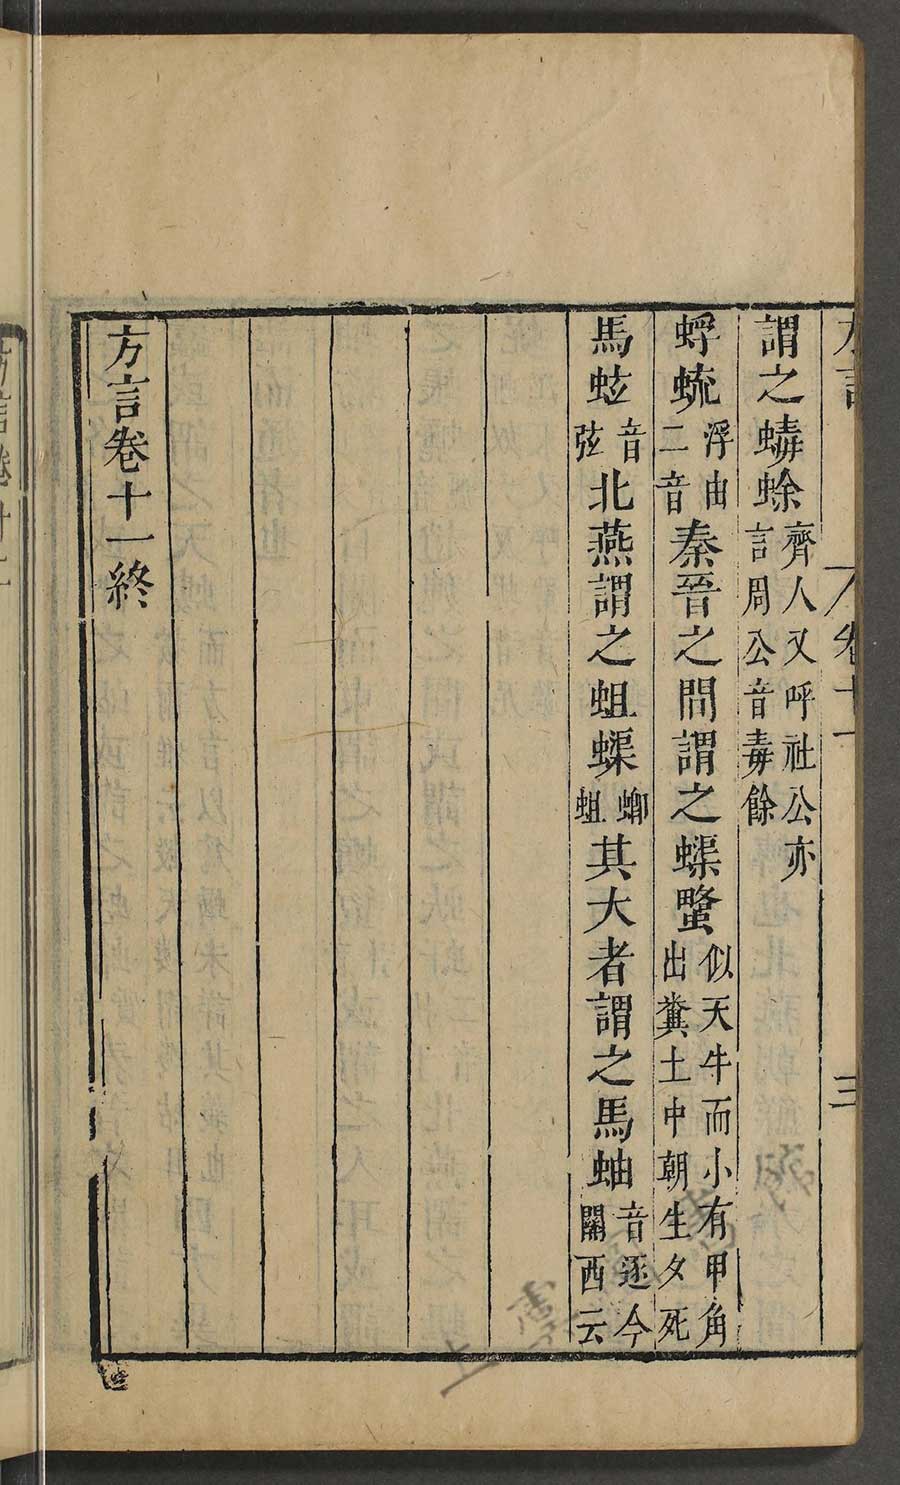 謂之蝳蜍齊人又呼社公亦言周公音毒餘
蜉𧋘浮由二音秦晉之間謂之蟝蟨似天牛而小有甲角出糞土中朝生夕死
馬蚿音弦北燕謂之蛆蟝蝍蛆其大者謂之馬蚰音逐今關西云
方言卷十一終
卷十一
三